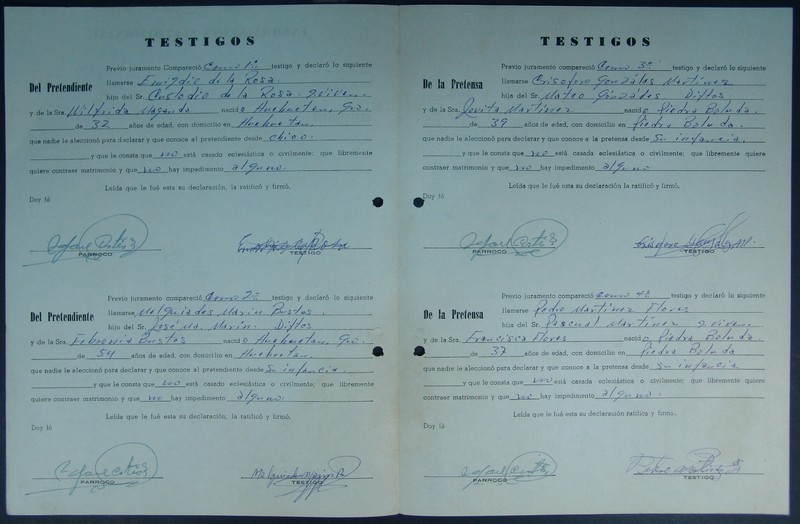 TESTIGOS
Previo juramento Compareció Como 1o. testigo y declaró lo siguiente
Del Pretendiente
llamarse Emigdio de la Rosa.
hijo del Sr. Custodio de la Rosa. q.viven.
y de la Sra. Wilfrida Maganda nació o Huehuetan, Gro.
de 32 años de edad, con domicilio en Huehuetan.
que nadie le aleccionó para declarar y que conoce al pretendiente desde chico.
y que le consta que no está casado eclesiástica o civilmente; que libremente
quiere contraer matrimonio y que no hay impedimento alguno.
Leída que le fué esta su declaración, la ratificó y firmó.
Doy fé
Rafael Ortiz
PARROCO
TESTIGO
Previo juramento compareció Como 2o. testigo y declaró lo siguiente
Del Pretendiente
llamarse Melquiades Marin Bustos.
hijo del Sr. José Ma. Marín. Diftos
y de la Sra. Febronia Bustos nació o Huehuetan, Gro.
de 54 años de edad, con domicilio en Huehuetan.
que nadie le aleccionó para declarar y que conoce al pretendiente desde su infancia.
y que le consta que no está casado eclesiástica o civilmente; que libremente
quiere contraer matrimonio y que no hay impedimento alguno.
Leída que le fué esta su declaración; la ratificó y firmó.
Doy fé
Rafael Ortiz
PARROCO
TESTIGO
TESTIGOS
Previo juramento compareció Como 3o. testigo y declaró lo siguiente
De la Pretensa
llamarse Crisoforo Gonzáles Martínez
hija del Sr. Mateo Gonzáles Diftos
y de la Sra. Jovita Martínez nació o Piedra Boluda.
de 39 años de edad, con domicilio en Piedra Boluda.
que nadie le aleccionó para declarar y que conoce a la pretensa desde su infancia.
y que le consta que no está casado eclesiástica o civilmente; que libremente quiere
contraer matrimonio y que no hay impedimento alguno
Leída que le fué esta su declaración, la ratificó y firmó.
Doy fé
Rafael Ortiz
PARROCO
TESTIGO
Previo juramento compareció Como 4o. testigo y declaró lo siguiente
De la Pretensa
llamarse Pedro Martínez Flores
hija del Sr. Pascual Martínez q.viven.
y de la Sra. Francisca Flores nació o Piedra Boluda
de 37 años de edad, con domicilio en Piedra Boluda
que nadie le aleccionó para declarar y que conoce a la pretensa desde su infancia
y que le consta que no está casado eclesiástica o civilmente; que libremente quiere
contraer matrimonio y que no hay impedimento alguno.
Leída que le fué esta su declaración ratificó y firmó.
Doy fé
Rafael Ortiz
PARROCO
TESTIGO